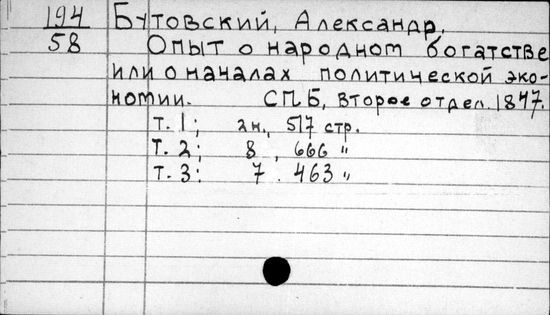 194 Бутовский, Александр,
58 Опыт о народном богатстве
или о началах политической эко-
номии. СПБ, второе отдел. 1847.
т. 1; 2н., 517 стр.
т. 2; 8, 666 "
т. 3: 7. 463 "